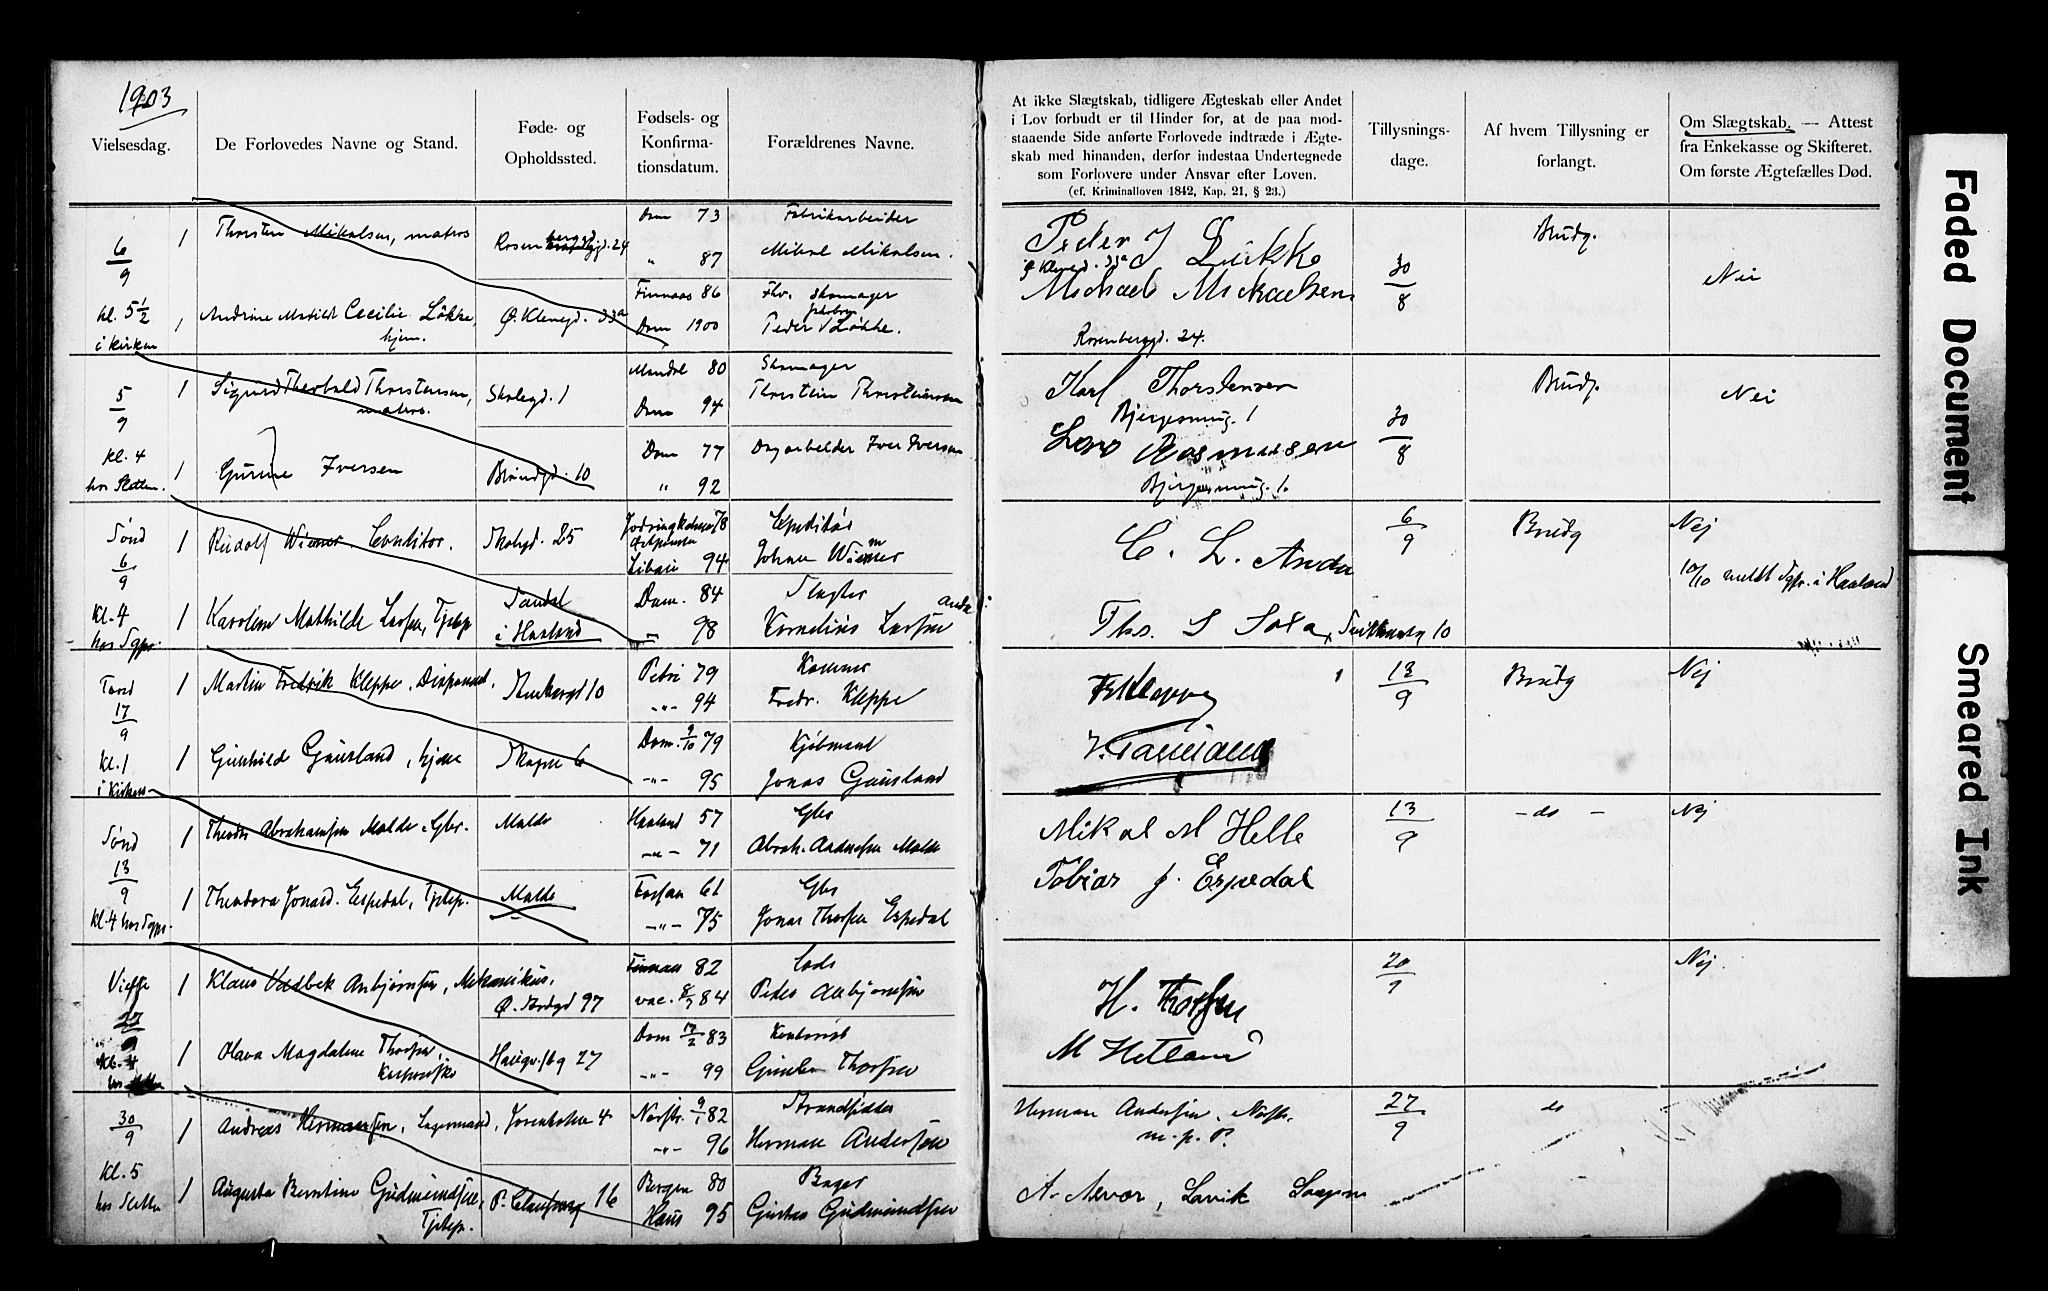 1903
Vielsesdag.
De Forlovedes Navne og Stand.
Føde- og
Opholdssted.
Fødsels- og
Konfirma-
tionsdatum.
Forældrenes Navne.
6/9
Kl. 5 1/2
i Kirken
1
Thorsten Mikalsen, matros
Rosenbergd. 24
Dom 73
" 87
Fabrikarbeider
Mikal Mikalsen.
1
Andrine Matild Cecilie Løkke,
hjem.
Ø. Kleivgd. 33a
Finnaas 86
Dom 1900
Fhv. Skomager
Peder Løkke.
5/9
Kl. 4
hos Slotten.
1
Sigurd Theobald Thorstensen,
matros.
Skolegd. 1
Mandal 80
Dom 94
Skomager
Thorstein Thorsteinsen
1
Gurine Iversen
Brøndgd. 10
Dom 77
" 92
Dagarbeider Iver Iversen
Sønd
6/9
Kl. 4
hos Sgpr.
1
Rudolf Wiemer. Conditor.
Skolegd. 25
Libau 94
Johan Wiemer
1
Karoline Mathilde Larsen, Tjpige
Sandal
i Haaland
Dom. 84
" 98
Slagter
Kornelius Larsen Anda
Torsd
17/9
Kl. 1
i Kirken
1
Martin Fredrik Kleppe, Disponent.
10
Petri 79
-"- 94
Fredr. Kleppe
1
Gunhild Gausland, hjem
Skagen 6
Dom. 9/10 79
-"- 95
Kjøbmand
Jonas Gausland
Sønd
13/9
Kl. 4 hos Sgpr.
1
Theodor Abrahamsen Malde, Gbr.
Malde
Haaland 57
-"- 71
Gbr
Abrah. Andersen Malde
1
Theodora Jonasd. Espedal, Tjpige.
Malde
Forsan 61
-"- 75
Gbr
Jonas Thorsen Espedal
27/9
Kl. 4
1
Klaus Vadbek Anbjørnsen, Mekanikus.
97
Finnaas 82
vac. 8/7 84
Lods
Peder Anbjørnsen
1
Olava Magdalene Thorsen,
27
Dom 17/2 83
-"- 99
Kontorist
Thorsen
30/9
Kl. 5
hos Slotten
1
Andreas Hermansen, Lagermand,
Jorenholmen 4
9/1 82
-"- 96
Strandsidder
Herman Andersen
1
Augusta Berntine Gudmundsen,
Tjpige.
P. Clausensg 16
Bergen 80
Haus 95
Bager
Gustav Gudmundsen
At ikke Slægtskab, tidligere Ægteskab eller Andet
i Lov forbudt er til Hinder for, at de paa mod-
staaende Side anførte Forlovede indtræde i Ægte-
skab med hinanden, derfor indestaa Undertegnede
som Forlovere under Ansvar efter Loven.
(cf. Kriminalloven 1842, Kap. 21, § 23.)
Tillysnings-
dage.
Af hvem Tillysning er
forlangt.
Om Slægtskab. — Attest
fra Enkekasse og Skifteret.
Om første Ægtefælles Død.
Peder J Lükke
Ø Kleivgd. 33a
Michael Mickaelsen
Rosenberggd. 24.
30/8
Brudg.
Nei
Karl Thorstensen
Bjergesmug. 1
Lars Rasmussen
Bjergesmug. 1.
30/8
Brudg.
Nei
C. L. Anda
Ths. S Sola, 10
6/9
Brudg
Nej
10/10 meldt Sgpr. i Haaland
Fr Kleppe
13/9
Brudg
Nej
Mikal M Helle
Tobias J. Espedal
13/9
- do -
Nej
H. Thorsen
M Hetland
20/9
Nej.
Herman Andersen.
m. p. P.
A. Nevør, Lavik
27/9
do
Faded Document
Smeared Ink